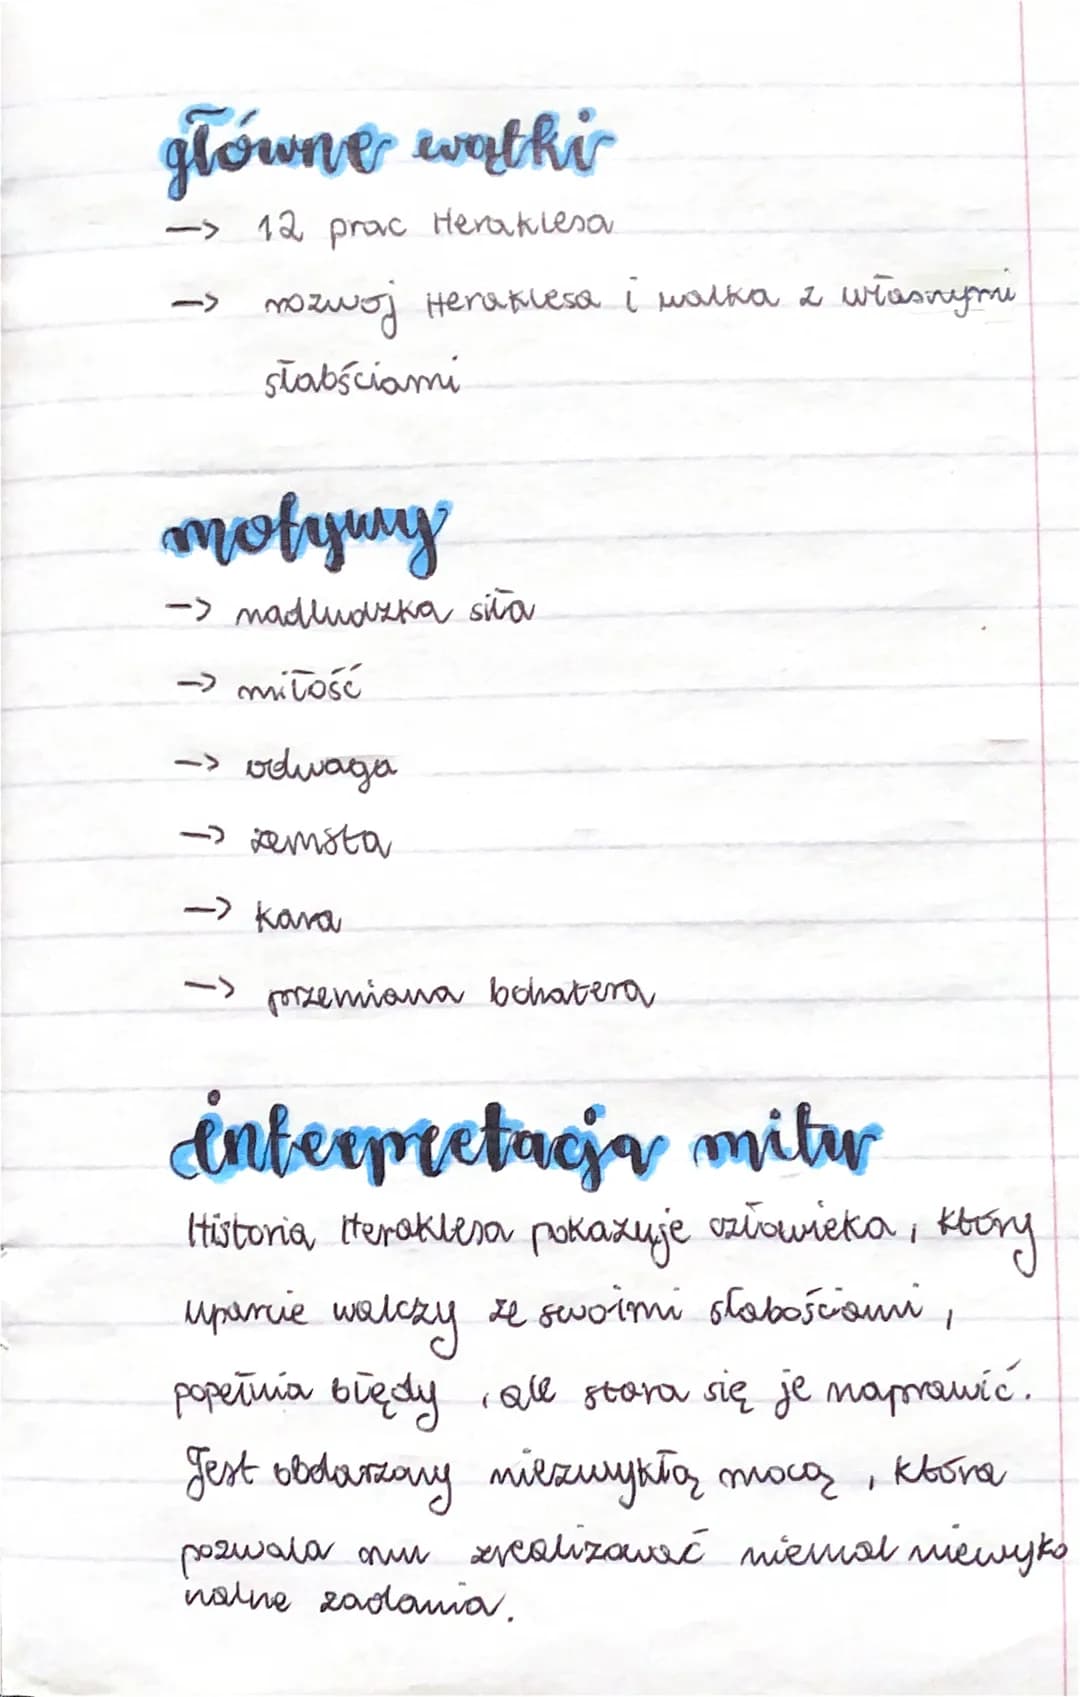 główne wątki
-> 12 prac Heraklesa
-> rozwój Heraklesa i walka z własnymi
słabściami
motywy
-> nadludzka siła
-> miłość
-> odwaga
-> zemsta
-> kara
-> przemiana bohatera
interpretacja mitu
Historia Heraklesa pokazuje człowieka, który
uparcie walczy ze swoimi słabościami,
popełnia błędy, ale stara się je naprawić.
Jest obdarzony niezwykłą mocą, która
pozwala mu zrealizować niemal niewyko
nalne zadania.